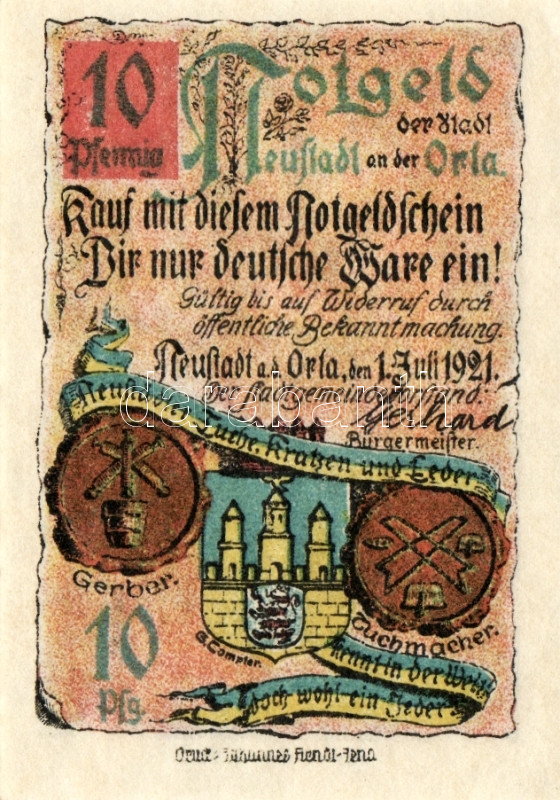 10
Pfennig
Notgeld
der Stadt
Neustadt an der Orla.
Kauf mit diesem Notgeldschein
Dir nur deutsche Ware ein!
Gültig bis auf Widerruf durch
öffentliche Bekanntmachung.
Neustadt a.d. Orla, den 1. Juli 1921.
Der Stadtgemeindevorstand:
Bürgermeister.
Tuche, Kratzen und Leder
Gerber.
Tuchmacher.
G. Compter.
10
Pfg.
kennt in der Welt
doch wohl ein Jeder
Druck: Johannes
darabanth